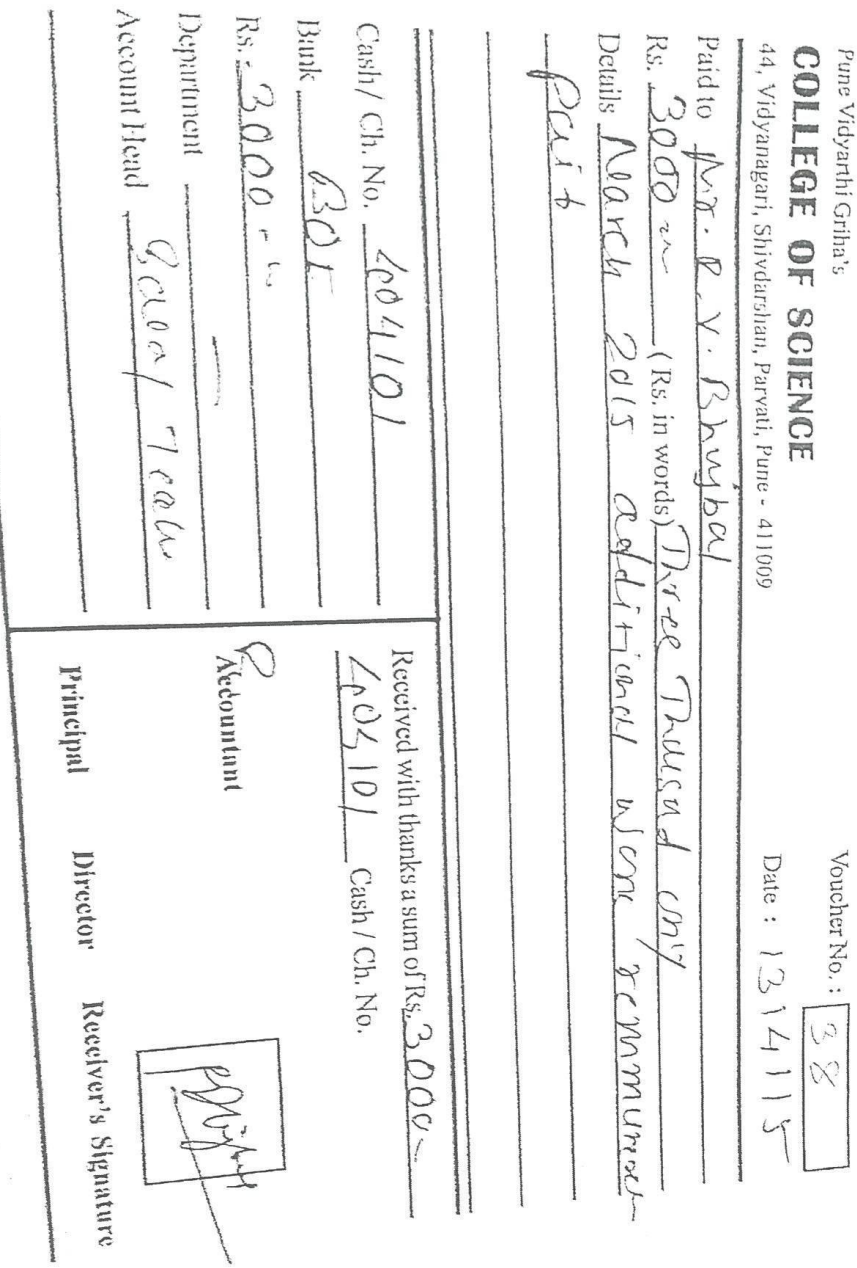 Pune Vidyarthi Griha's
COLLEGE OF SCIENCE
44, Vidyanagari, Shivdarshan, Parvati, Pune - 411009
Voucher No. : 38
Date : 13/4/15
Paid to Mr. P. V. Bhujbal
Rs. 3000 (Rs. in words) Three Thousand only
Details March 2015 additional work
paid
Cash / Ch. No. 404101
Bank BOI
Rs. - 3000 -
Department —
Account Head
Received with thanks a sum of Rs. 3000
404101 Cash / Ch. No.
Accountant
Principal Director Receiver's Signature